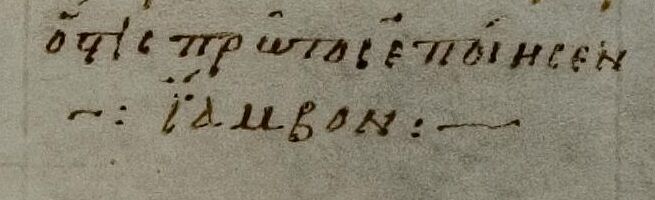 ὅστις πρῶτος ἐποίησεν
~: ἴαμβον :~